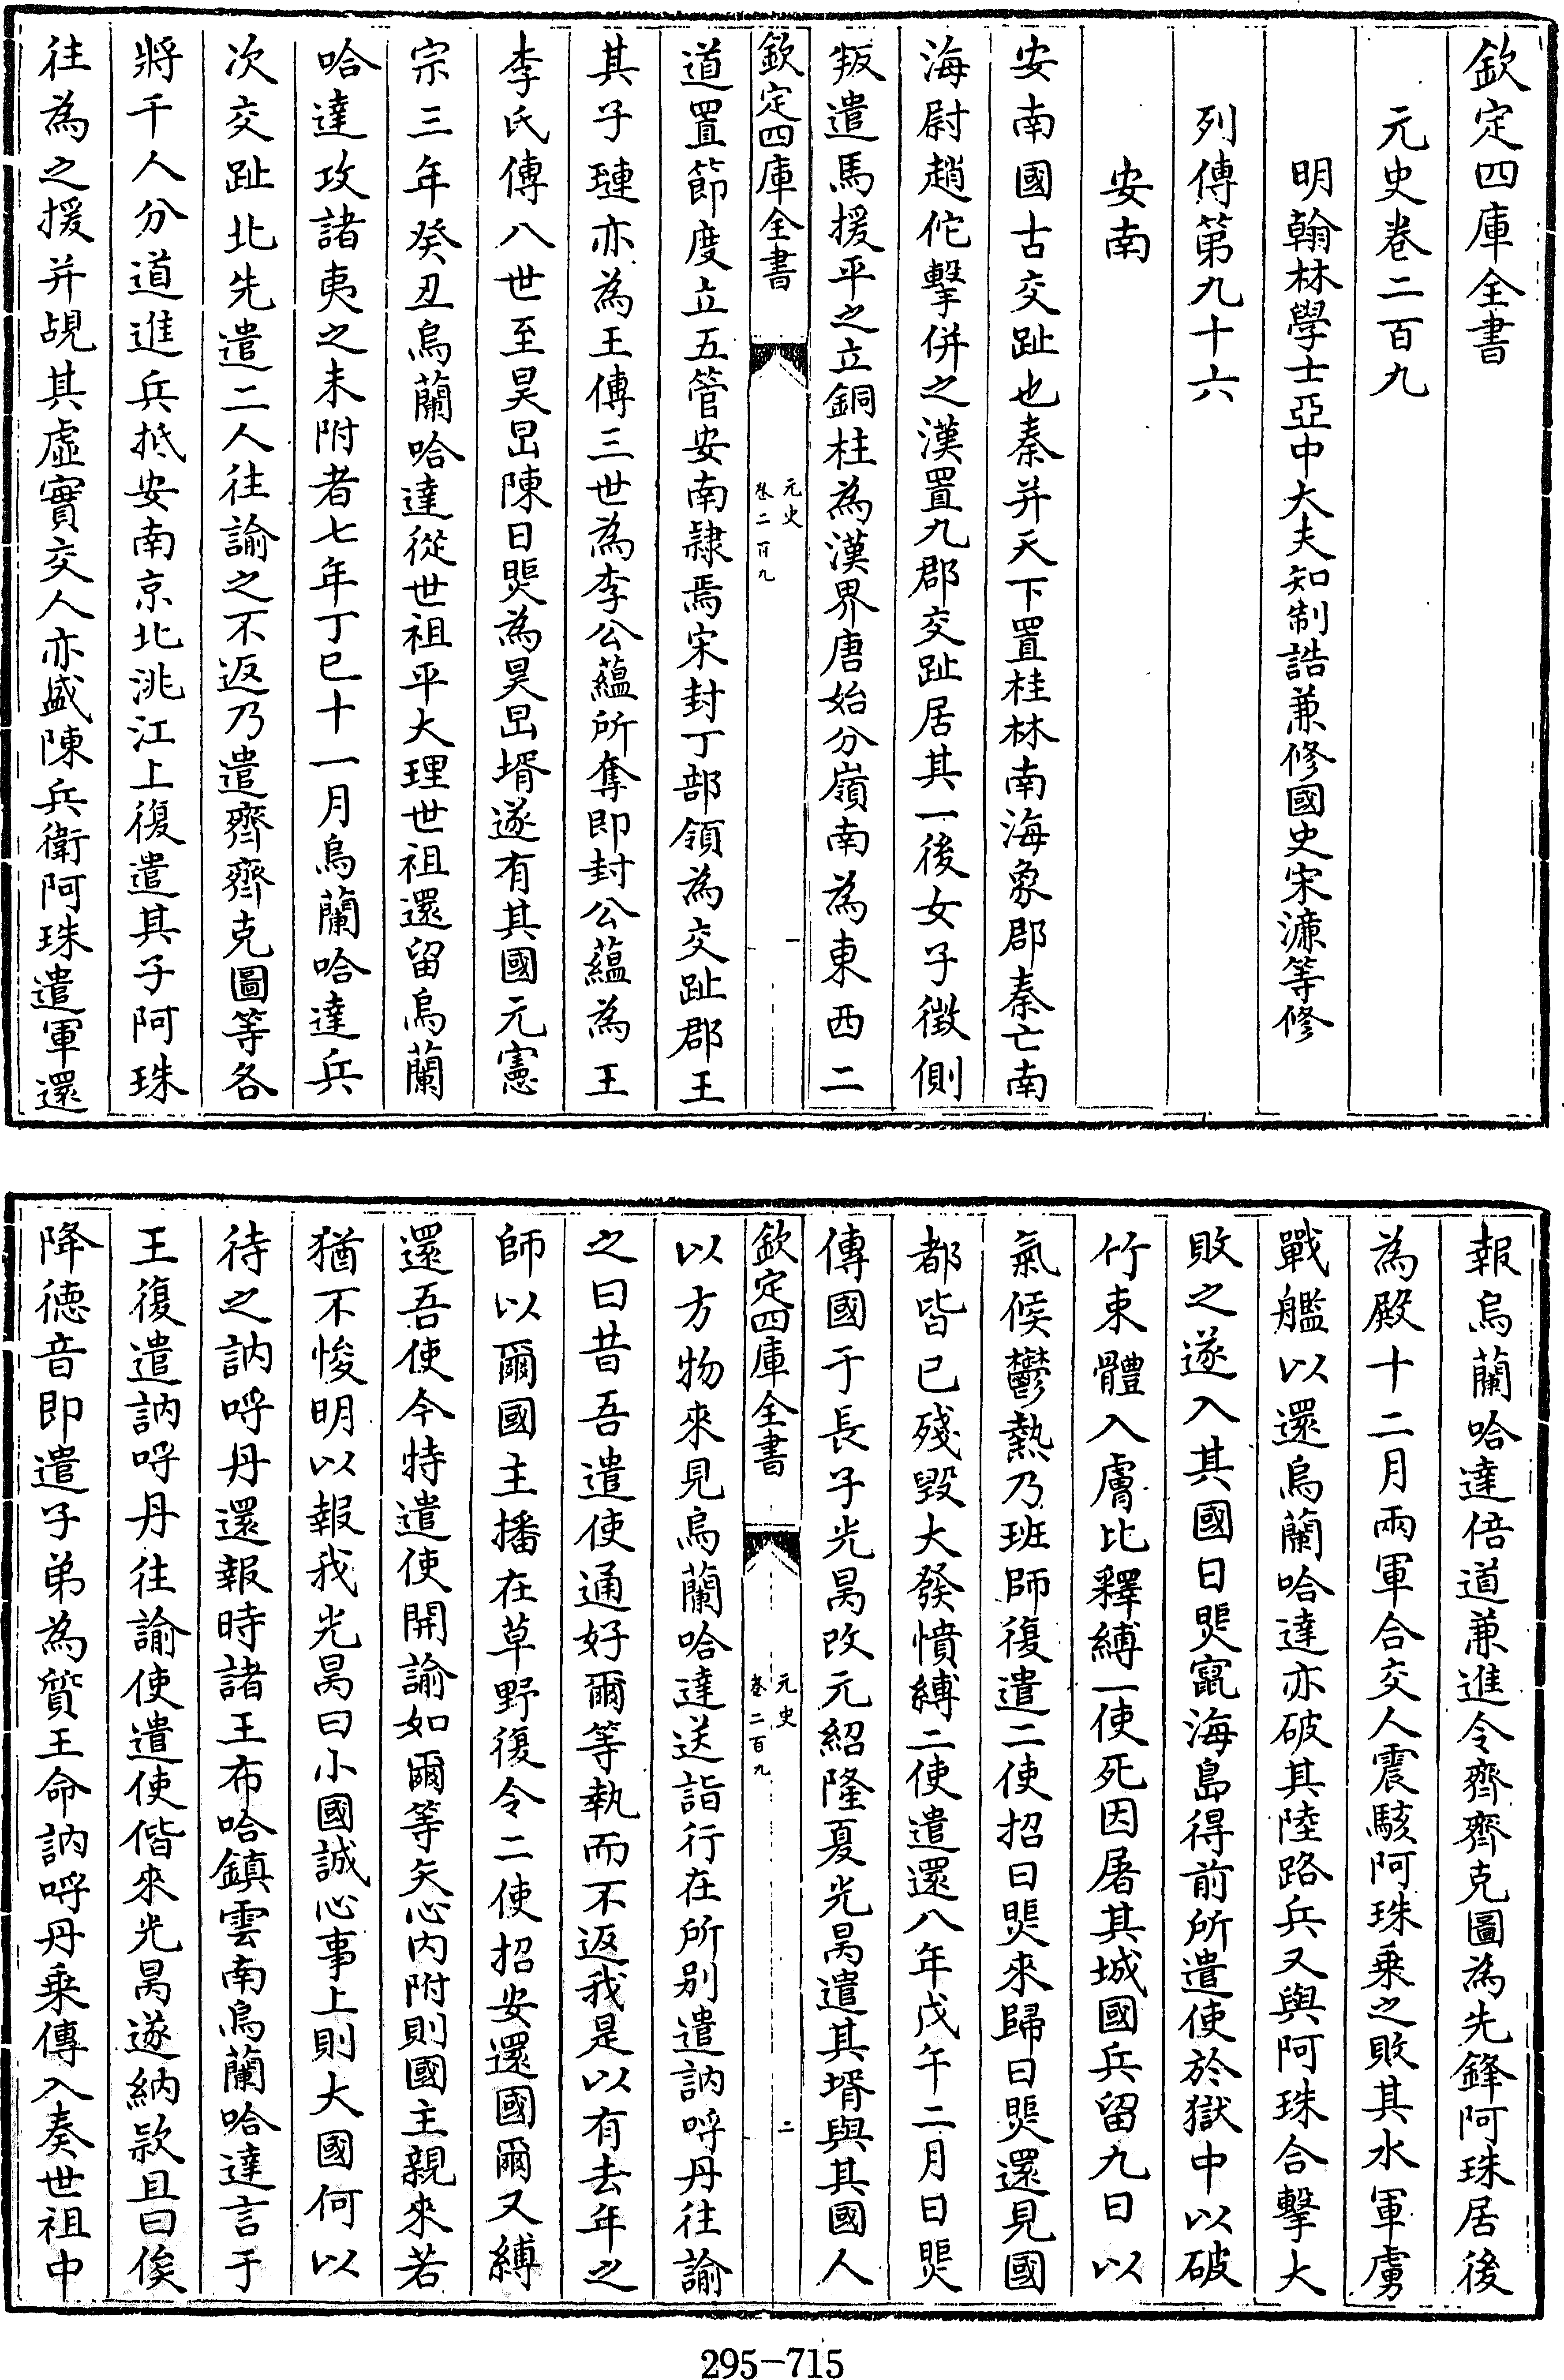 欽定四庫全書
元史卷二百九
明翰林學士亞中大夫知制誥兼修國史宋濂等修
列傳第九十六
安南
安南國古交趾也秦并天下置桂林南海象郡秦亡南
海尉趙佗擊併之漢置九郡交趾居其一後女子徵側
叛遣馬援平之立銅柱為漢界唐始分嶺南為東西二
欽定四庫全書
元史
卷二百九
一
道置節度立五管安南隷焉宋封丁部領為交趾郡王
其子璉亦為王傳三世為李公蘊所奪即封公蘊為王
李氏傳八世至昊旵陳日煚為昊旵壻遂有其國元憲
宗三年癸丑烏蘭哈達從世祖平大理世祖還留烏蘭
哈達攻諸夷之未附者七年丁巳十一月烏蘭哈達兵
次交趾北先遣二人往諭之不返乃遣齊齊克圖等各
將千人分道進兵抵安南京北洮江上復遣其子阿珠
往為之援并覘其虛實交人亦盛陳兵衛阿珠遣軍還
報烏蘭哈達倍道兼進令齊齊克圖為先鋒阿珠居後
為殿十二月兩軍合交人震駭阿珠乗之敗其水軍虜
戰艦以還烏蘭哈達亦破其陸路兵又與阿珠合擊大
敗之遂入其國日煚竄海島得前所遣使於獄中以破
竹束體入膚比釋縛一使死因屠其城國兵留九日以
氣候鬱熱乃班師復遣二使招日煚來歸日煚還見國
都皆已殘毀大發憤縛二使遣還八年戊午二月日煚
傳國于長子光昺改元紹隆夏光昺遣其壻與其國人
欽定四庫全書
元史
卷二百九
二
以方物來見烏蘭哈達送詣行在所别遣訥呼丹往諭
之曰昔吾遣使通好爾等執而不返我是以有去年之
師以爾國主播在草野復令二使招安還國爾又縛
還吾使今特遣使開諭如爾等矢心内附則國主親來若
猶不悛明以報我光昺曰小國誠心事上則大國何以
待之訥呼丹還報時諸王布哈鎮雲南烏蘭哈達言于
王復遣訥呼丹往諭使遣使偕來光昺遂納款且曰俟
降德音即遣子弟為質王命訥呼丹乗傳入奏世祖中
295-715